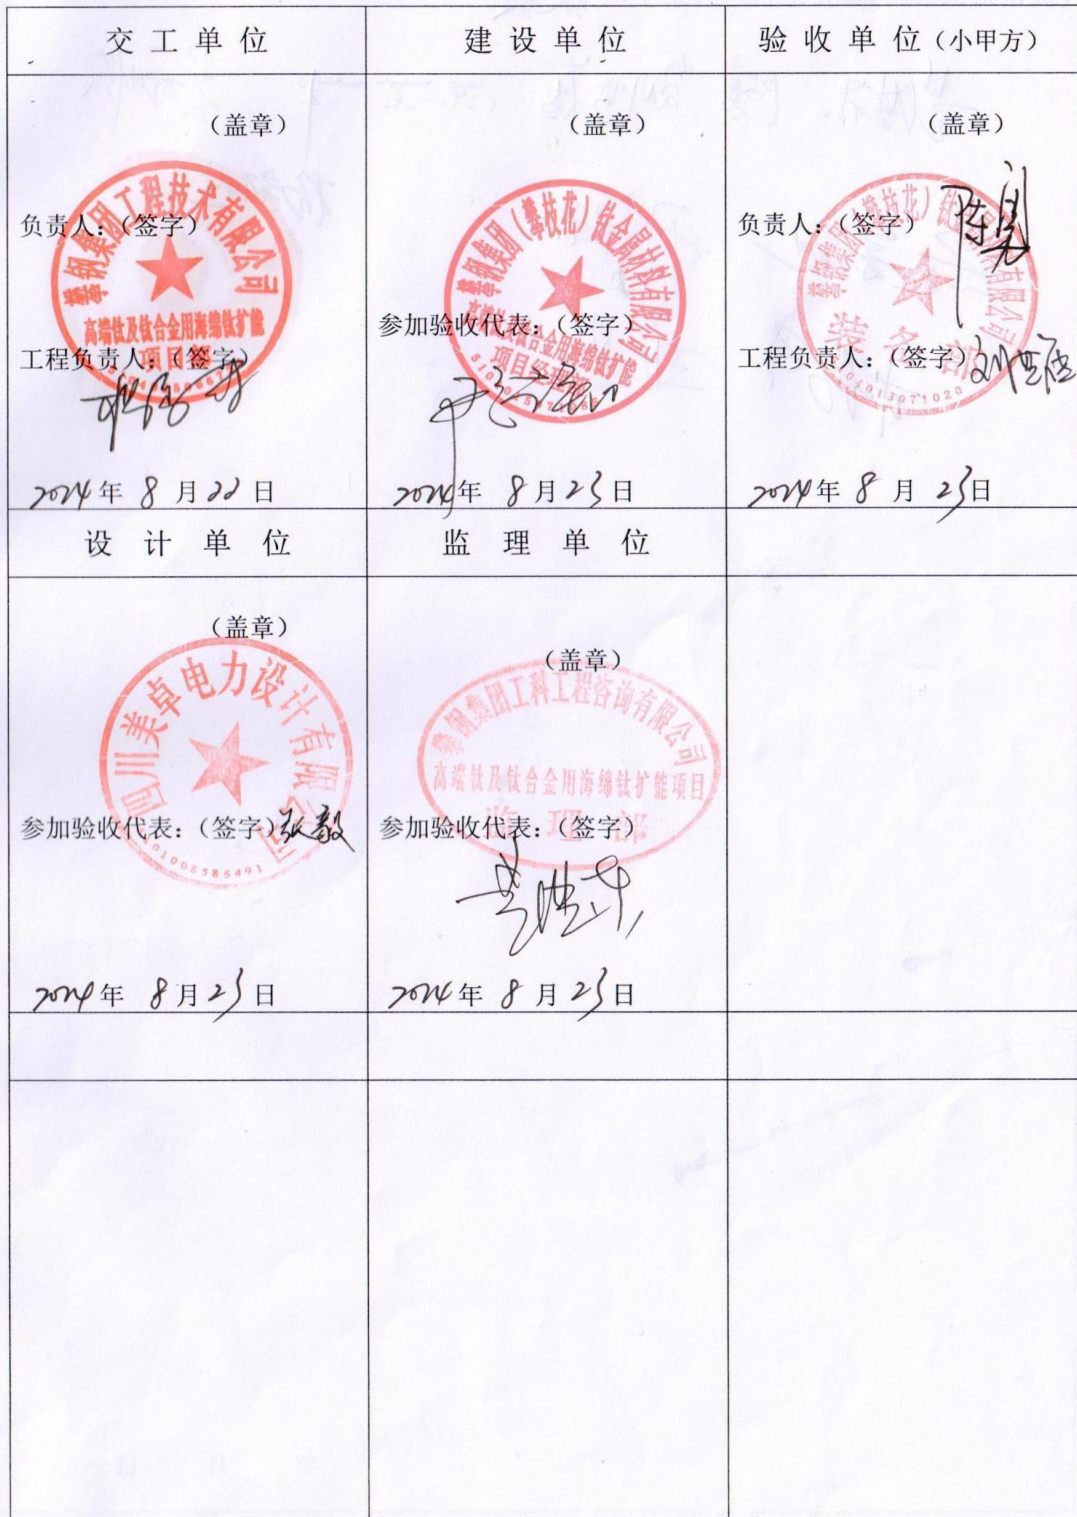 交工单位
建设单位
验收单位(小甲方)
(盖章)
负责人:(签字)
攀钢集团工程技术有限公司
高端钛及钛合金用海绵钛扩能
项目部
工程负责人:(签字)
2024年 8月22日
(盖章)
攀钢集团(攀枝花)钛金属材料有限公司
高端钛及钛合金用海绵钛扩能
项目经理部
参加验收代表:(签字)
2024年 8月23日
(盖章)
负责人:(签字)
陈勇
攀钢集团(攀枝花)钛金属材料有限公司
装备部
工程负责人:(签字)
2024年 8月 23日
设计单位
监理单位
(盖章)
四川美卓电力设计有限公司
参加验收代表:(签字)张毅
2024年 8月23日
(盖章)
攀钢集团工科工程咨询有限公司
高端钛及钛合金用海绵钛扩能项目
监理部
参加验收代表:(签字)
2024年 8月23日